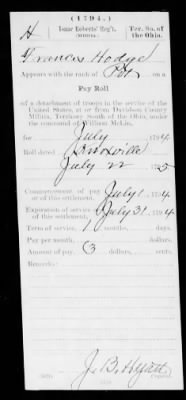 (1794.)
H Isaac Roberts' Reg't Ter. So. of
(MILITIA.) the Ohio.
Francis Hodge
Appears with the rank of Pvt on a
Pay Roll
of a detachment of troops in the service of the
United States, at or from Davidson County
Militia, Territory South of the Ohio, under
the command of William McLin,
for July 1794
Roll dated Knoxville
July 22 1795
Commencement of pay of this settlement, July 1, 1794
Expiration of service of this settlement, July 31, 1794
Term of service, 1 months, days.
Pay per month, dollars, cents.
Amount of pay, 3 dollars, cents.
Remarks:
J. B. Hyatt
Copyist.